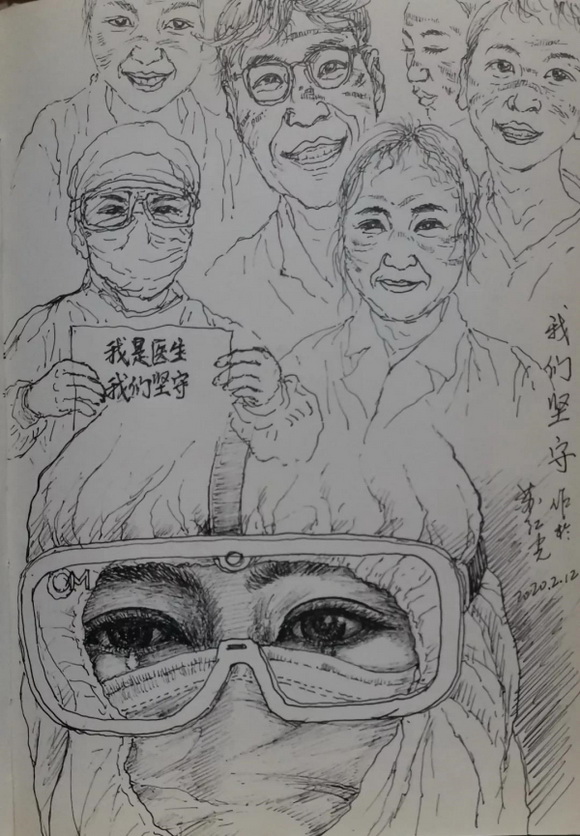 我是医生
我们坚守
OM
我们坚守
作於
2020.2.12